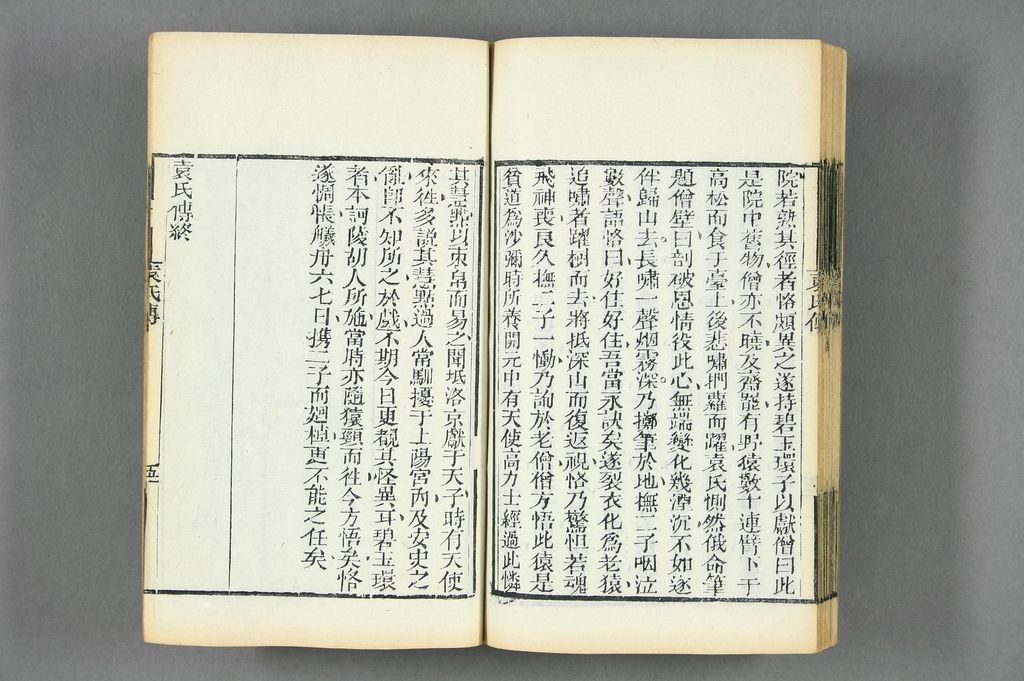 院若熟其徑者恪頗異之遂持碧玉環子以獻僧曰此
是院中舊物僧亦不曉及齋罷有野猿數十連臂下于
高松而食于臺上後悲嘯捫蘿而躍袁氏惻然俄命筆
題僧壁曰剖破恩情役此心無端變化幾湮沉不如逐
伴歸山去長嘯一聲烟霧深乃擲筆於地撫二子咽泣
數聲語恪曰好住好住吾當永訣矣遂裂衣化爲老猿
追嘯者躍樹而去將抵深山而復返視恪乃驚怛若魂
飛神喪良久撫二子一慟乃詢於老僧僧方悟此猿是
貧道爲沙彌時所養開元中有天使高力士經過此憐
其慧黠以束帛而易之聞抵洛京獻于天子時有天使
來徃多說其慧黠過人常馴擾于上陽宮內及安史之
亂卽不知所之於戲不期今日更覩其怪異耳碧玉環
者本訶陵胡人所施當時亦隨猿頸而徃今方悟矣恪
遂惆悵艤舟六七日携二子而廻棹更不能之任矣
袁氏傳終
袁氏傳
五